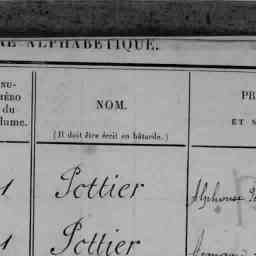 ALPHABÉTIQUE.
NU-
MÉRO
du
NOM.
PR
ET
(Il doit être écrit en bâtarde.)
1 Pottier Alphonse
1 Pottier